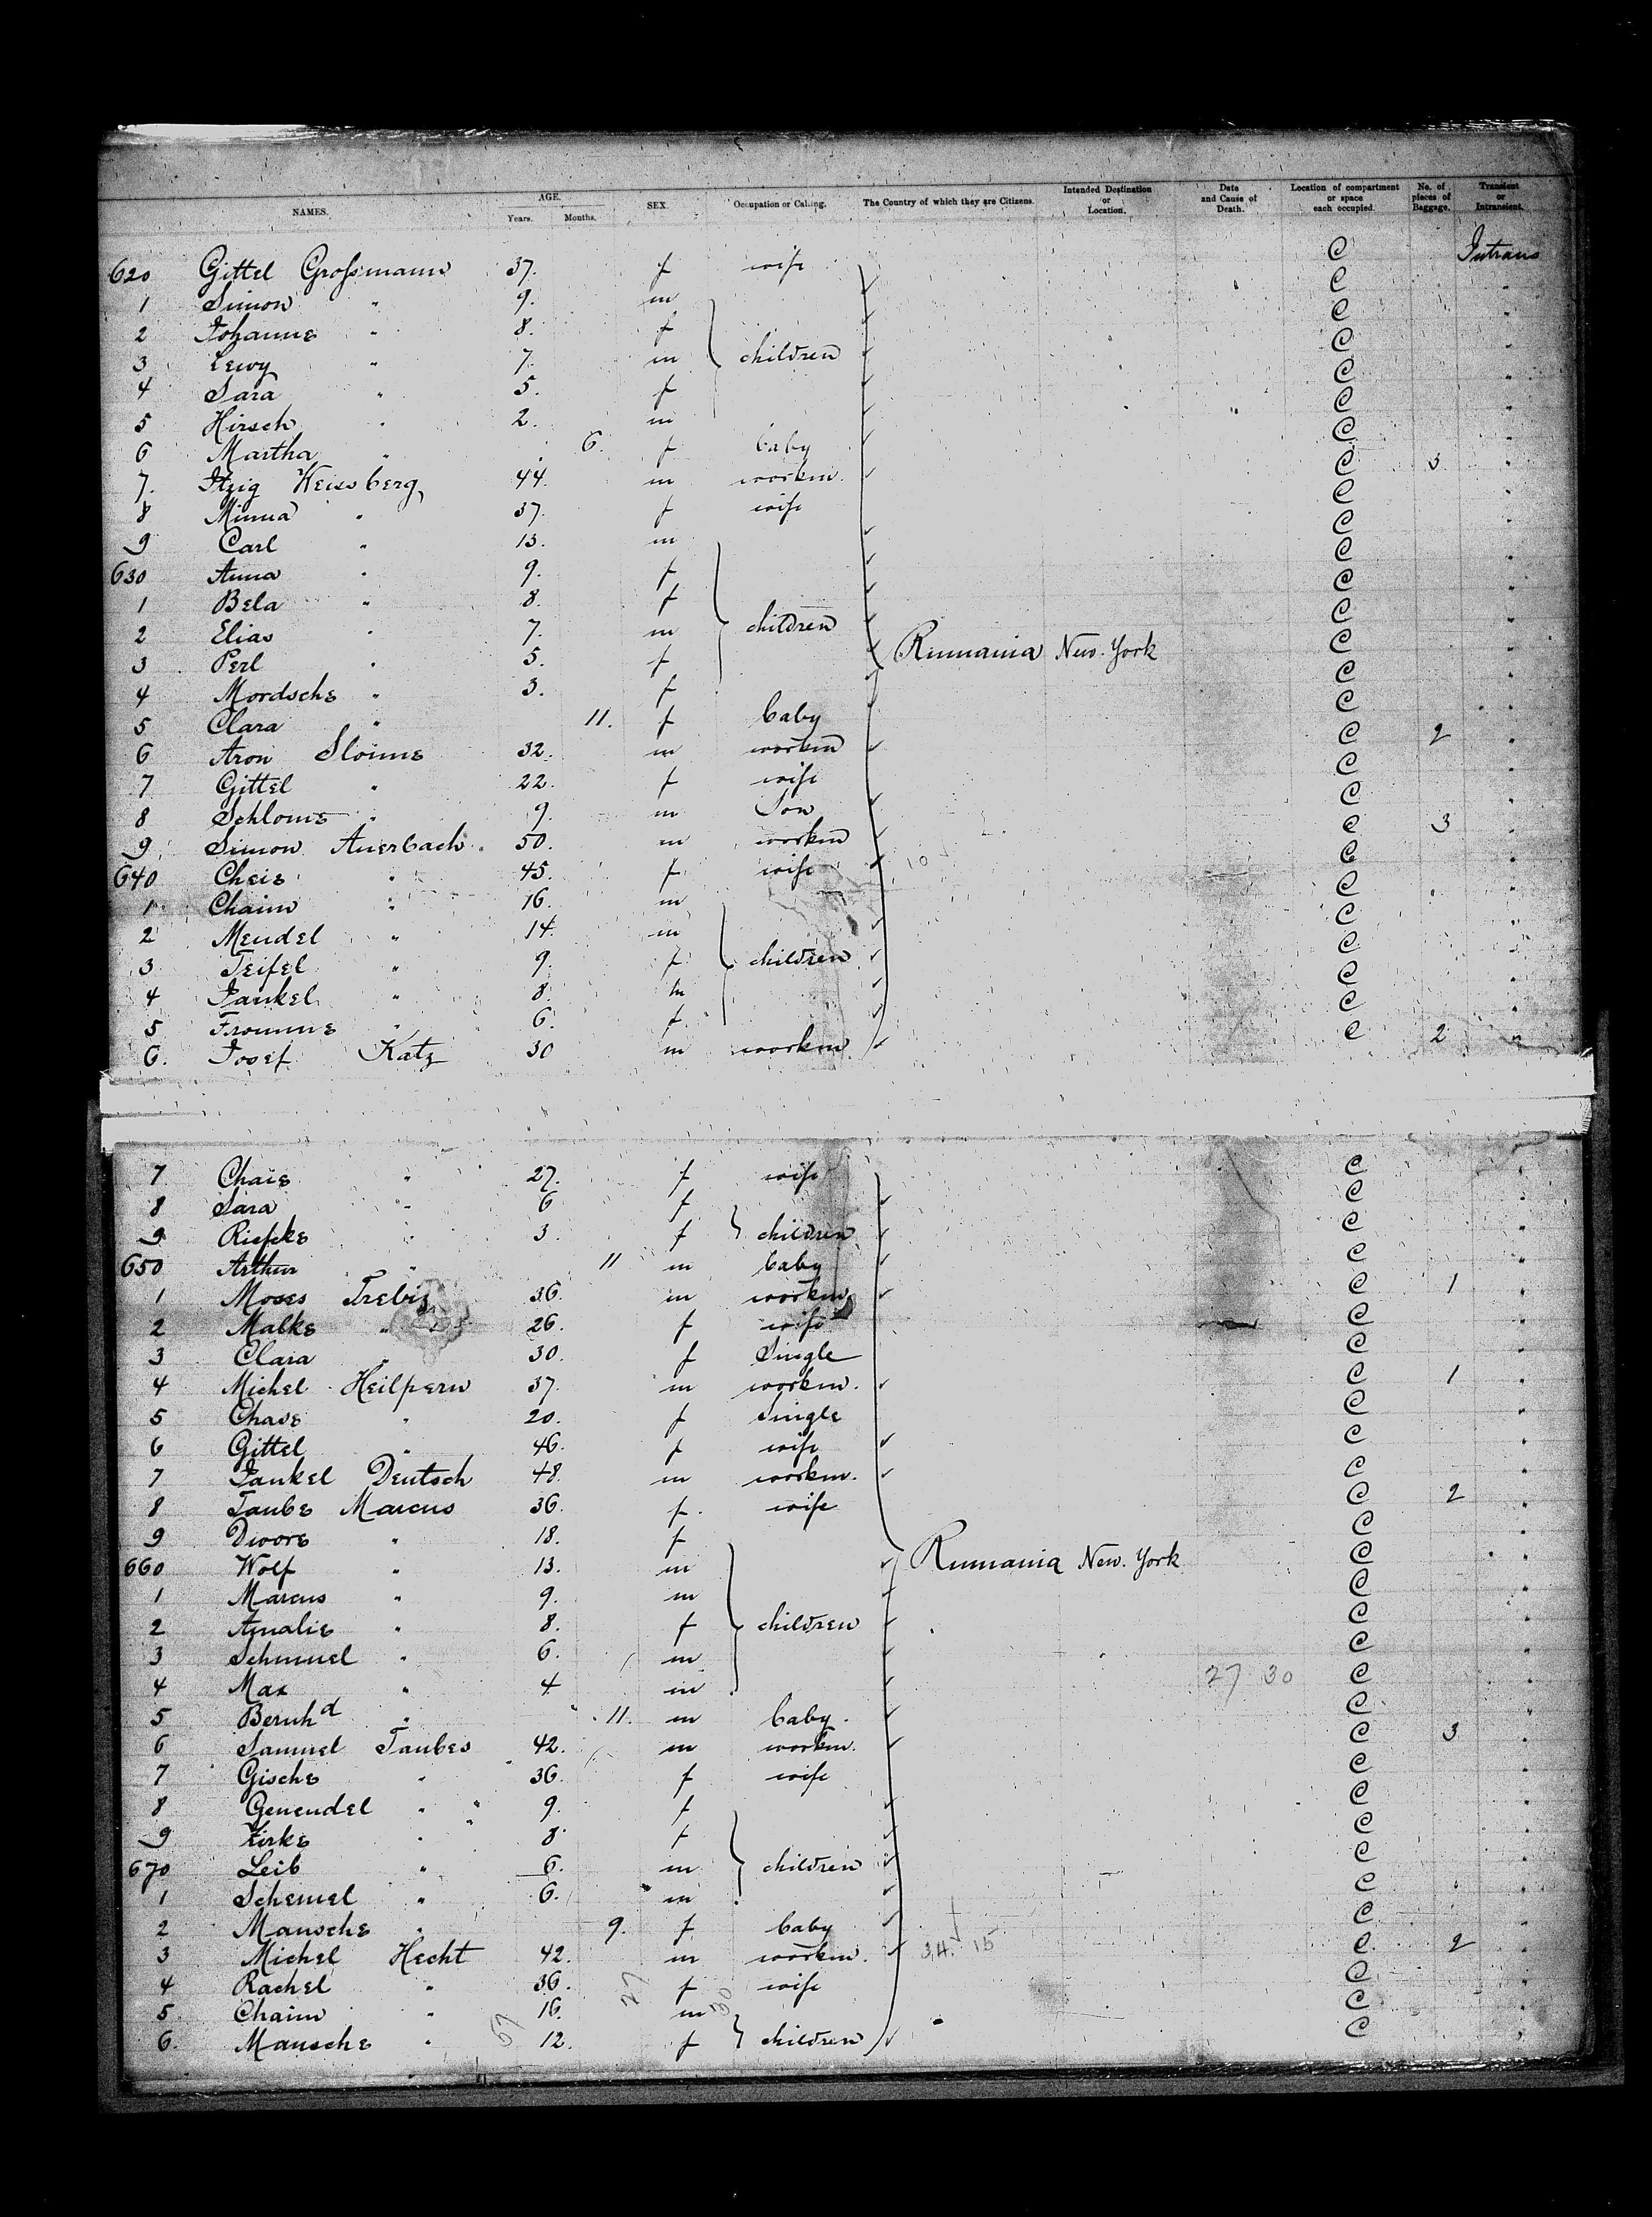 NAMES. AGE. Years. Months. SEX. Occupation or Calling. The Country of which they are Citizens. Intended Destination or Location. Date and Cause of Death. Location of compartment or space each occupied. No. of pieces of Baggage. Transient or Intransient.
620 Gittel Großmann 37. f wife C Intrans
1 Simon " 9. m C "
2 Johanne " 8. f C "
3 Lewy " 7. m children C "
4 Sara " 5. f C "
5 Hirsch " 2. m C "
6 Martha " 6. f baby C "
7. Itzig Weissberg 44. m workm. C 3 "
8 Minna " 37. f wife C "
9 Carl " 13. m C "
630 Anna " 9. f C "
1 Bela " 8. f C "
2 Elias " 7. m children C "
3 Perl " 5. f Rumania New. York C "
4 Mordsche " 3. f C "
5 Clara " 11. f baby C "
6 Aron Sloime 32. m workm C 2 "
7 Gittel " 22. f wife C "
8 Schlome " 9. m Son C "
9 Simon Auerbach 50. m workm C 3 "
640 Cheie " 45. f wife C "
1 Chaim " 16. m C "
2 Mendel " 14. m C "
3 Teifel " 9. f children C "
4 Jankel " 8. m C "
5 Fromme " 6. f C "
6. Josef Katz 30 m workm C 2 "
7 Chaie " 27. f wife C "
8 Sara " 6 f C "
9 Riefke " 3. f children C "
650 Arthur " 11 m baby C "
1 Moses Trebis 36. m workm C 1 "
2 Malke " 26. f wife C "
3 Clara " 30. f Single C "
4 Michel Heilpern 37. m workm. C 1 "
5 Chave " 20. f Single C "
6 Gittel " 46. f wife C "
7 Jankel Deutsch 48. m workm. C "
8 Taube Marcus 36. f. wife C 2 "
9 Dwore " 18. f C "
660 Wolf " 13. m Rumania New. York C "
1 Marcus " 9. m C "
2 Amalie " 8. f children C "
3 Schmuel " 6. m C "
4 Max " 4 m 27 30 C "
5 Bernhd " 11. m baby. C "
6 Samuel Taubes 42. m workm. C 3 "
7 Gische " 36. f wife C "
8 Genendel " 9. f C "
9 Zirke " 8. f C "
670 Leib " 6. m children C "
1 Schemel " 6. m C "
2 Mansche " 9. f baby C "
3 Michel Hecht 42. m workm. 34. 15 C. 2 "
4 Rachel " 36. f wife C "
5 Chaim " 16. m C "
6. Mansche " 12. f children C "